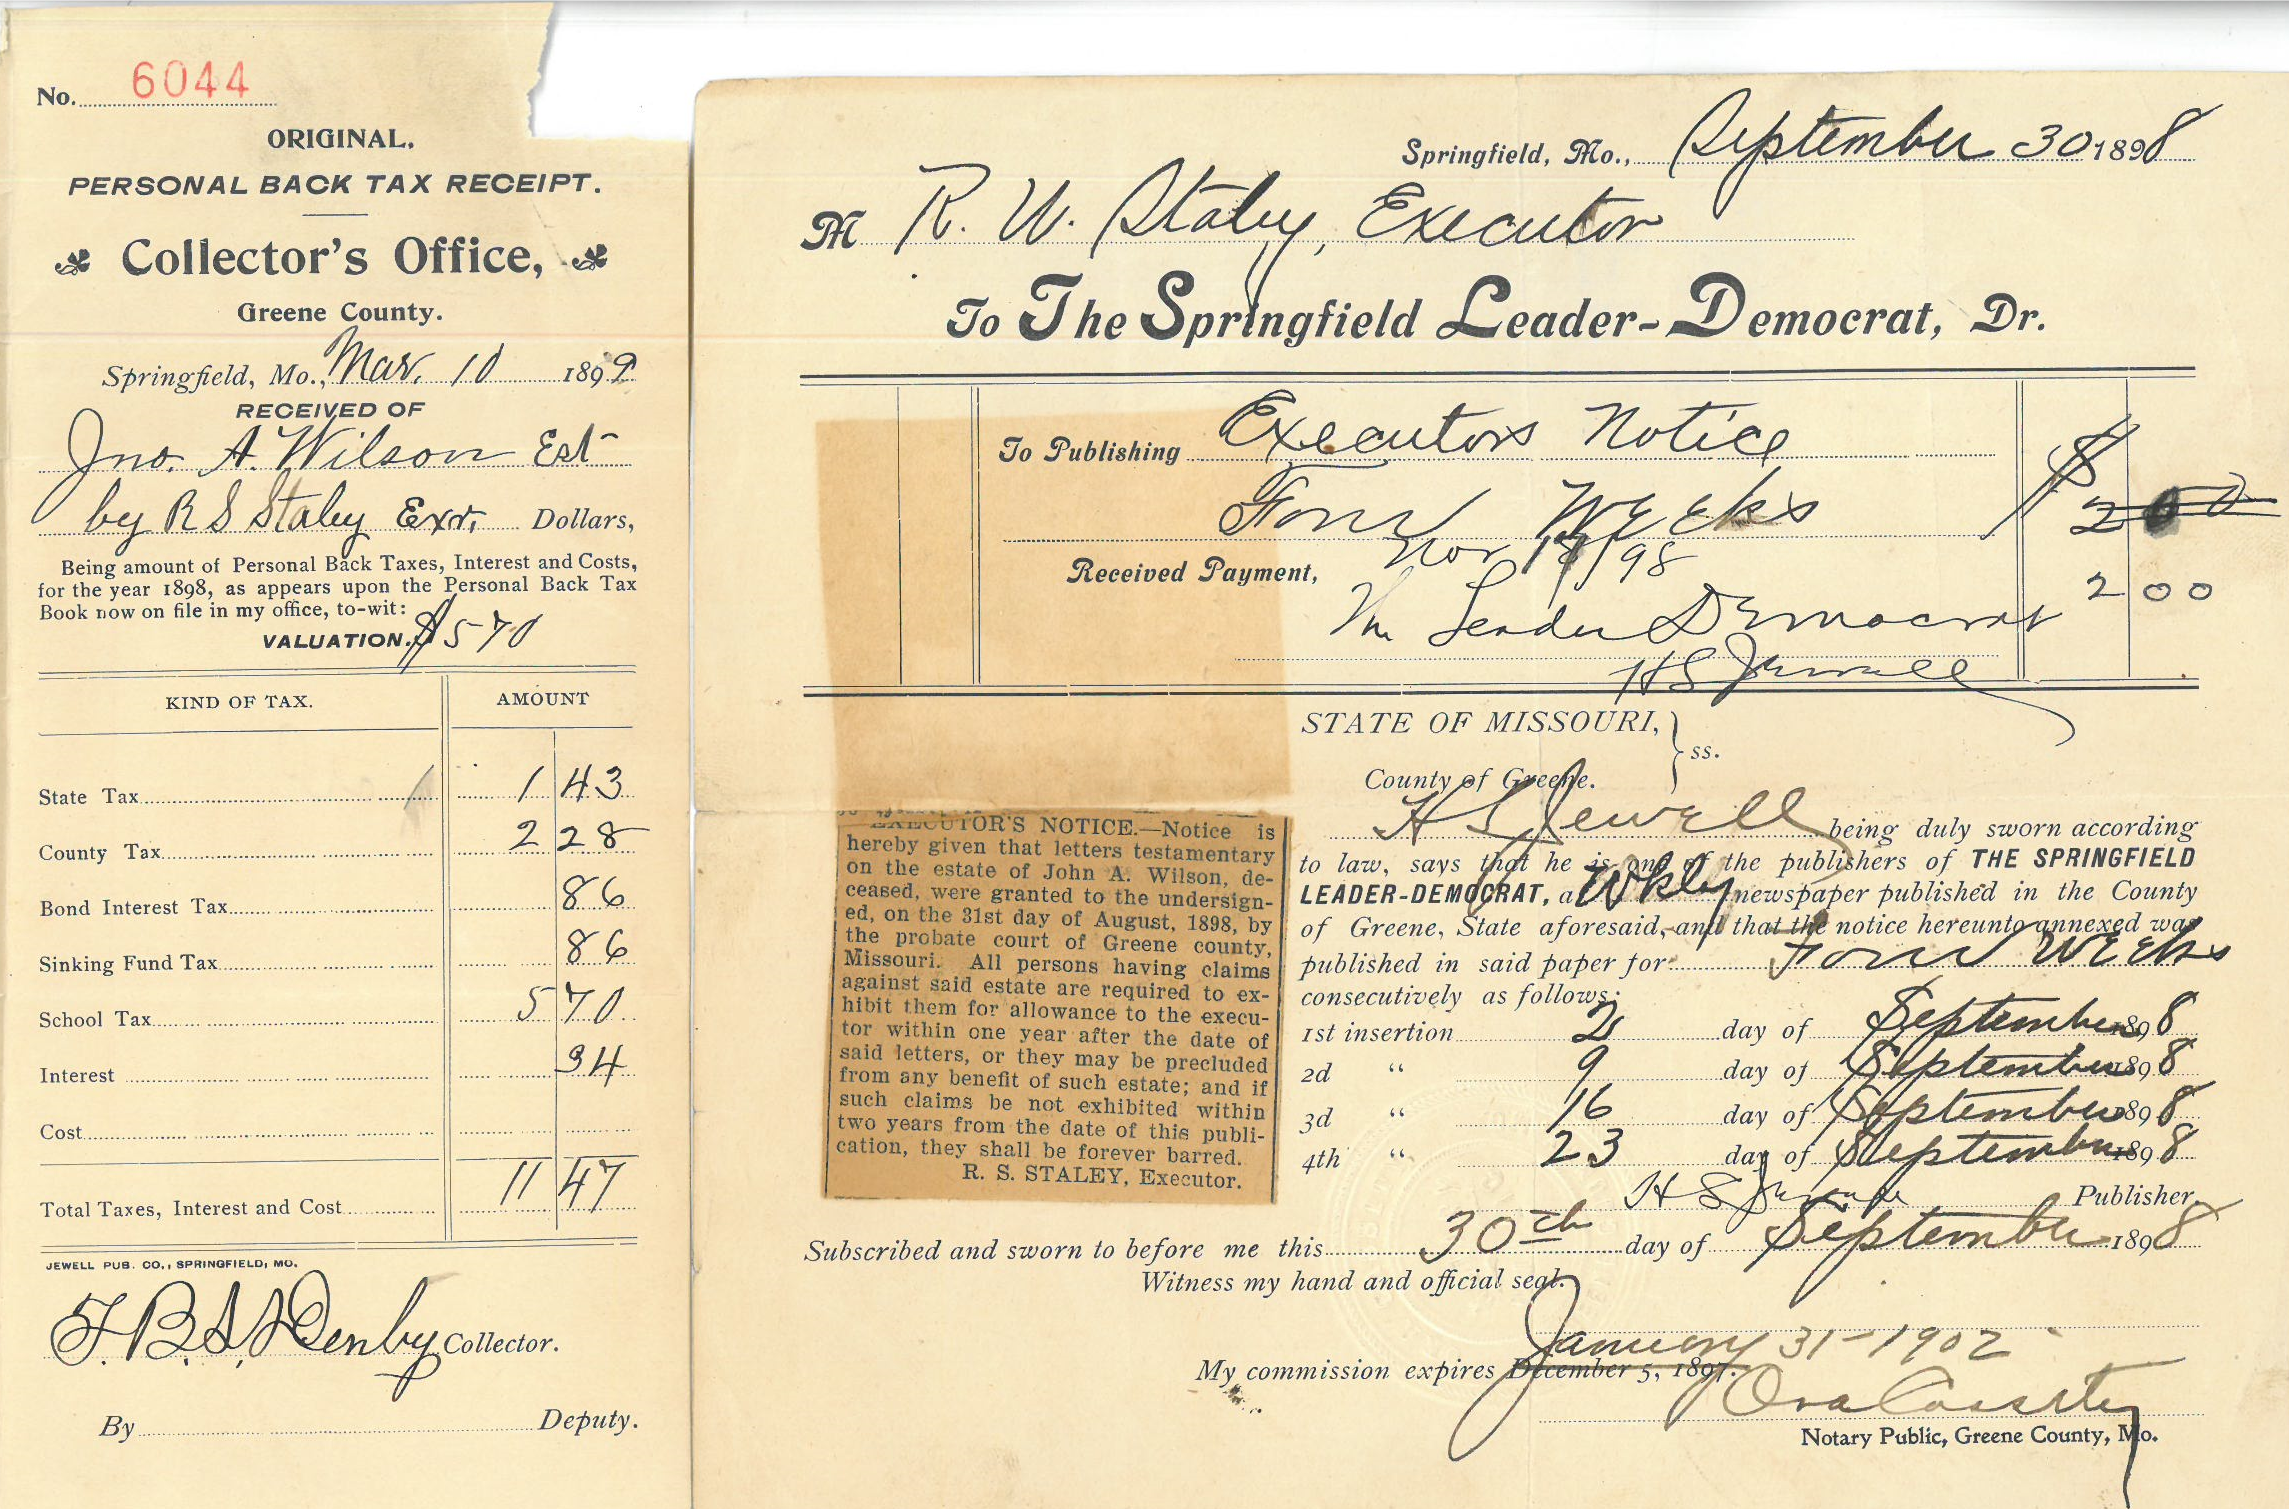 No. 6044
ORIGINAL.
PERSONAL BACK TAX RECEIPT.
Collector's Office,
Greene County.
Springfield, Mo., Mar. 10 1899
RECEIVED OF
Jno. A. Wilson Est
by R S Staley Exr. Dollars,
Being amount of Personal Back Taxes, Interest and Costs,
for the year 1898, as appears upon the Personal Back Tax
Book now on file in my office, to-wit:
VALUATION. $570
KIND OF TAX. AMOUNT
State Tax 1 43
County Tax 2 28
Bond Interest Tax 86
Sinking Fund Tax 86
School Tax 5 70
Interest 34
Cost
Total Taxes, Interest and Cost 11 47
JEWELL PUB. CO., SPRINGFIELD, MO.
Collector.
By Deputy.
Springfield, Mo., September 30 1898
M R. W. Staley, Executor
To The Springfield Leader-Democrat, Dr.
To Publishing Executors Notice
Four Weeks $ 2 00
Received Payment, Nov 18/98
The Leader Democrat 2 00
H S Jewell
STATE OF MISSOURI,
County of Greene. } ss.
H S Jewell being duly sworn according
to law, says that he is one of the publishers of THE SPRINGFIELD
LEADER-DEMOCRAT, a Wkly newspaper published in the County
of Greene, State aforesaid, and that the notice hereunto annexed was
published in said paper for Four Weeks
consecutively as follows:
1st insertion 2 day of September 1898
2d " 9 day of September 1898
3d " 16 day of September 1898
4th " 23 day of September 1898
H S Jewell Publisher
EXECUTOR'S NOTICE.—Notice is
hereby given that letters testamentary
on the estate of John A. Wilson, de-
ceased, were granted to the undersign-
ed, on the 31st day of August, 1898, by
the probate court of Greene county,
Missouri. All persons having claims
against said estate are required to ex-
hibit them for allowance to the execu-
tor within one year after the date of
said letters, or they may be precluded
from any benefit of such estate; and if
such claims be not exhibited within
two years from the date of this publi-
cation, they shall be forever barred.
R. S. STALEY, Executor.
Subscribed and sworn to before me this 30th day of September 1898
Witness my hand and official seal.
January 31-1902
My commission expires December 5, 1897.
Notary Public, Greene County, Mo.